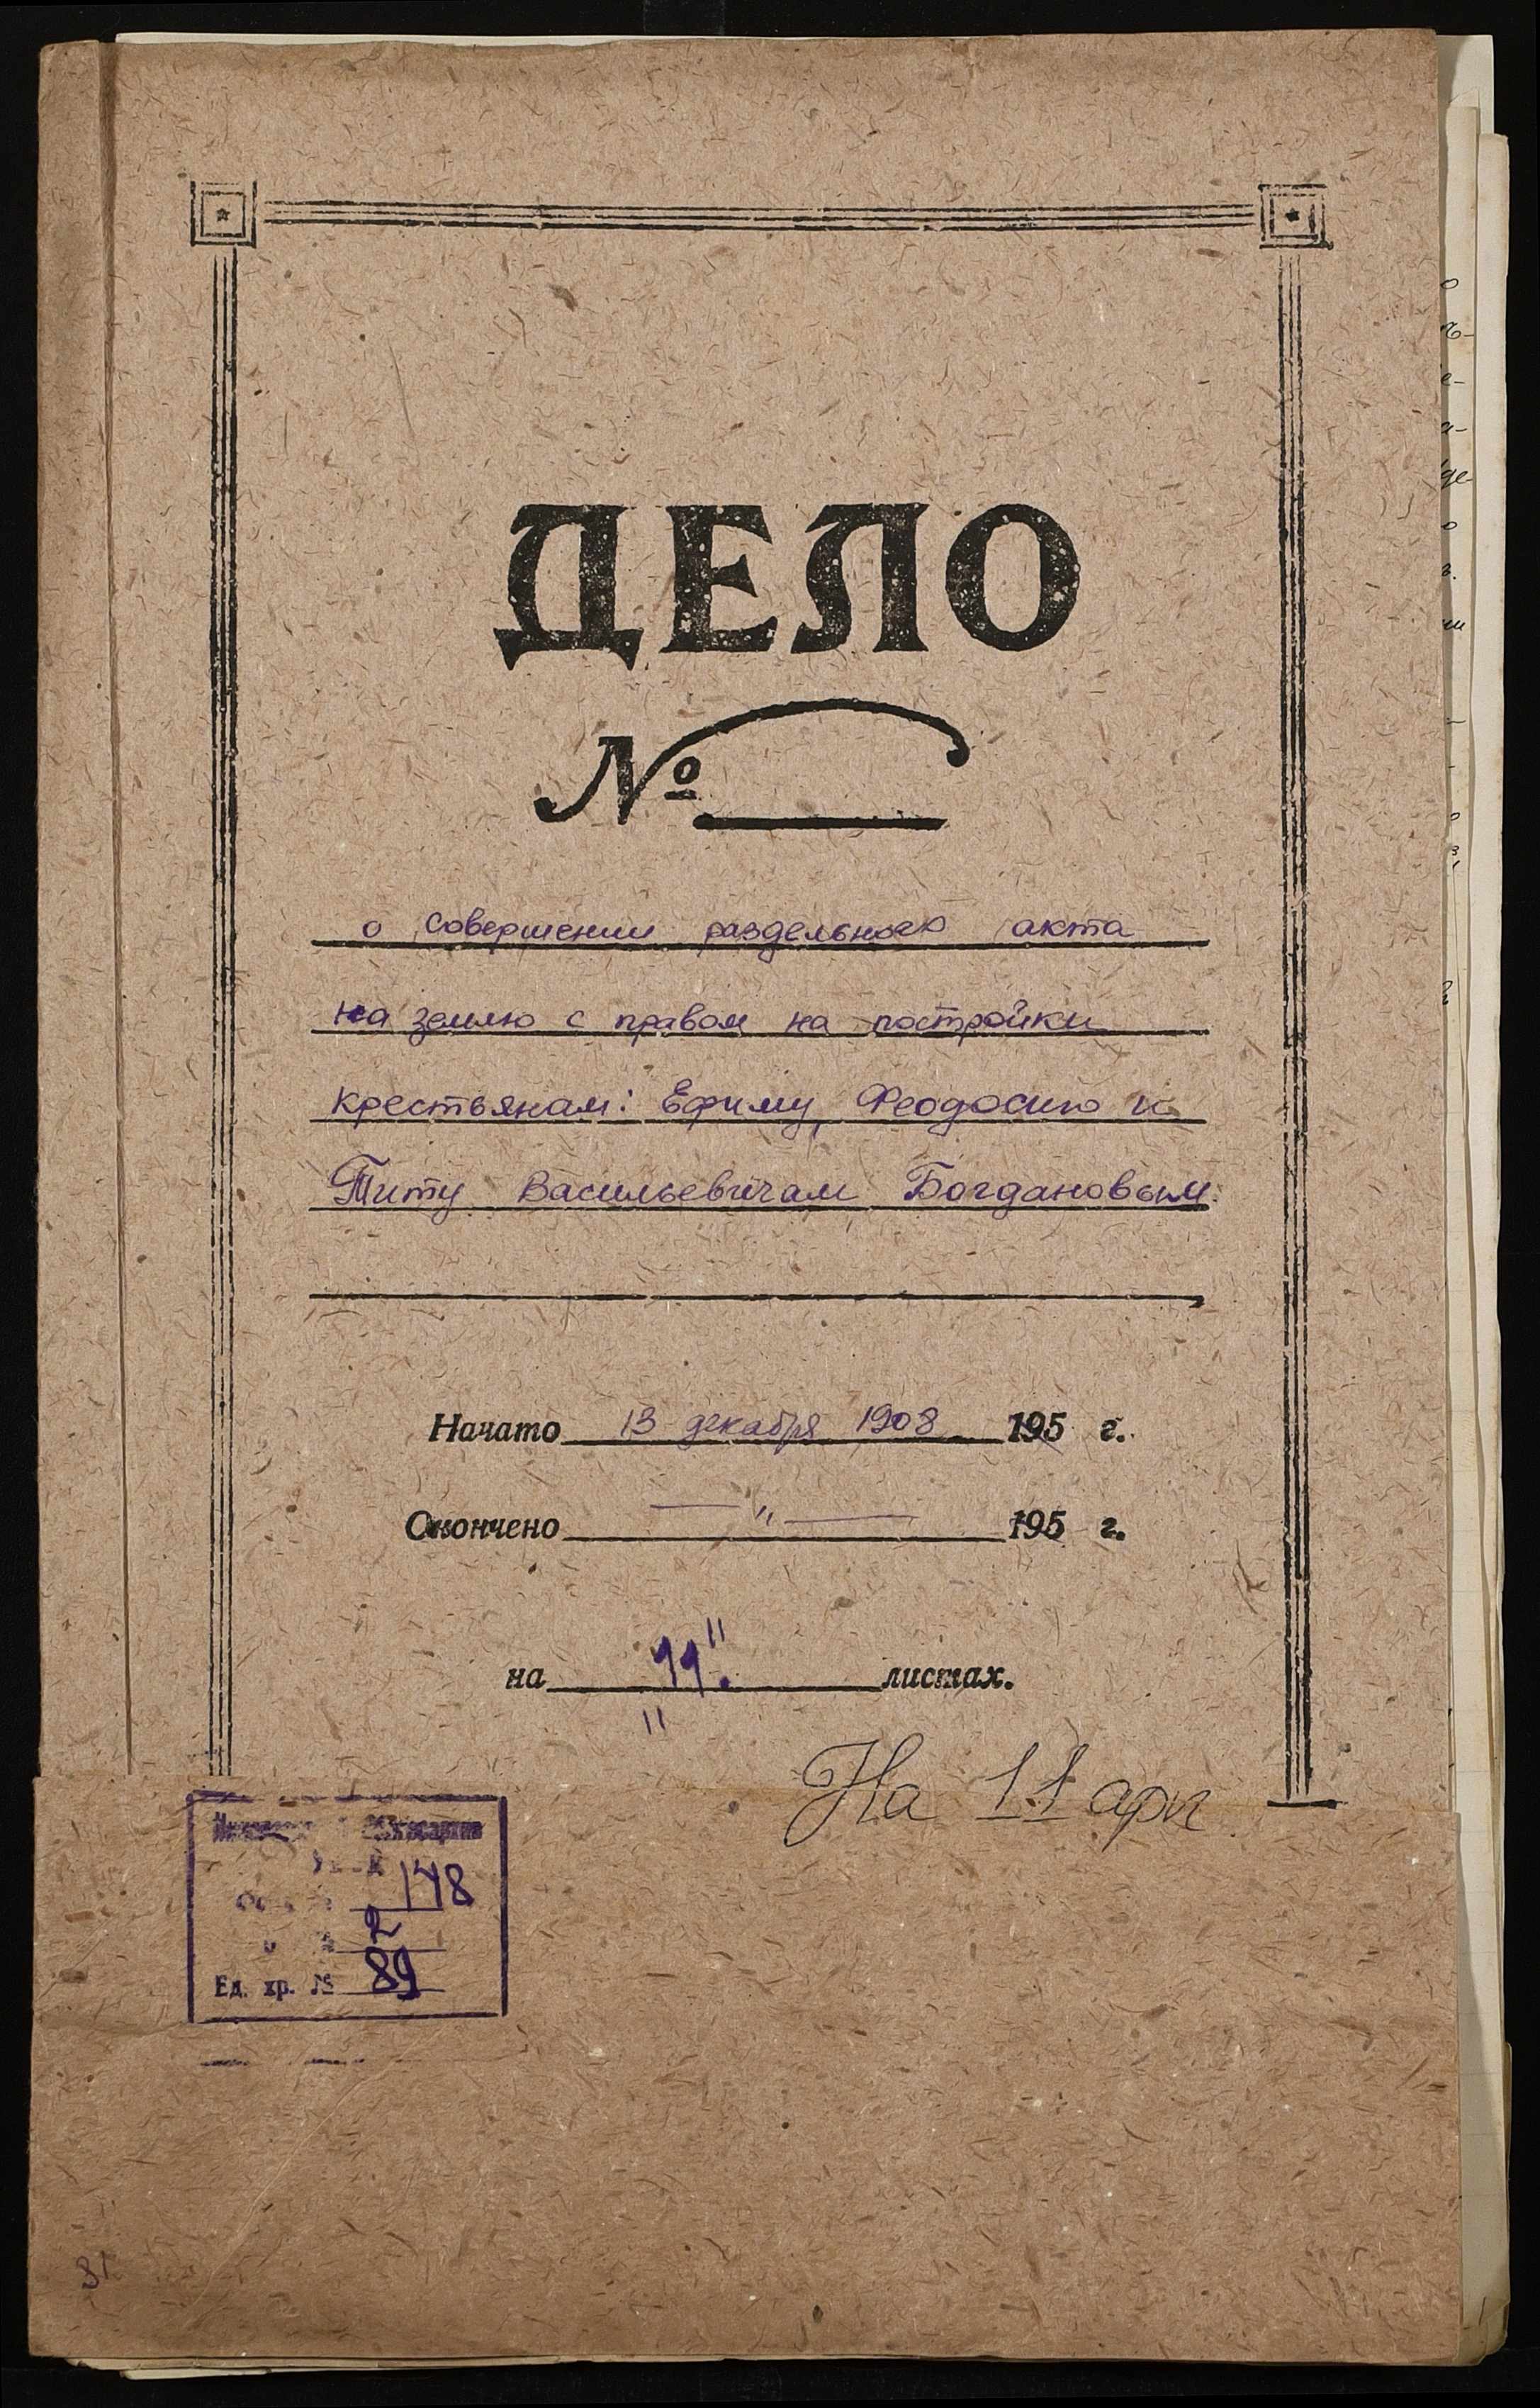 ДЕЛО
№
о совершении раздельного акта
на землю с правом на постройки
крестьянам: Ефиму, Феодосию и
Титу Васильевичам Богдановым.
Начато 13 декабря 1908 195 г.
Окончено — " — 195 г.
на "11" листах.
На 11 арк
148
2
Ед. хр. № 89
81